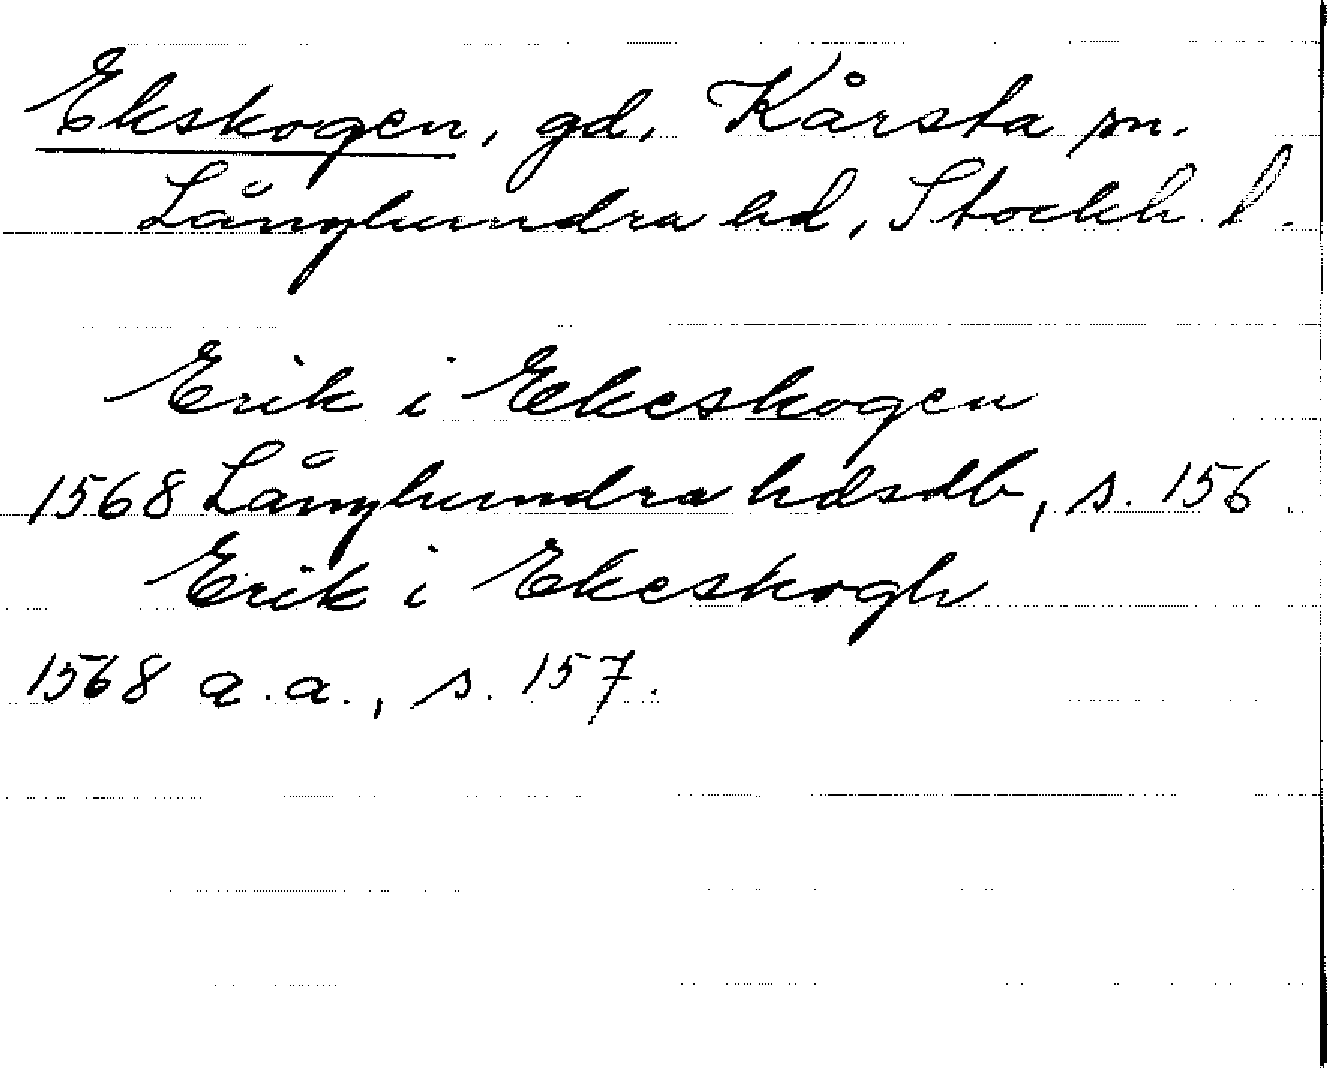 Ekskogen, gd, Kårsta sn.
Långhundra hd, Stockh. l.
Erik i Ekeskogen
1568 Långhundra hdsdb, s. 156
Erik i Ekeskogh
1568 a.a., s. 157.